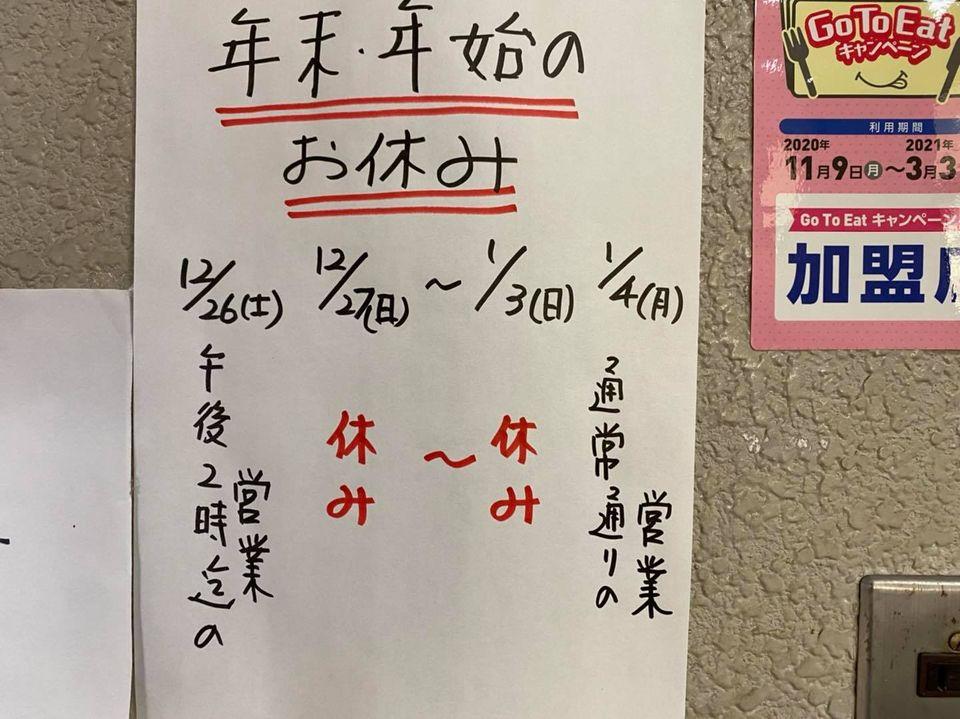 年末・年始の
お休み
12/26(土)
午後2時迄の
営業
12/27(日)～1/3(日)
休み～休み
1/4(月)
通常通りの
営業
Go To Eat
キャンペーン
利用期間
2020年
11月9日(月)～
2021年
3月3
Go To Eat キャンペーン
加盟